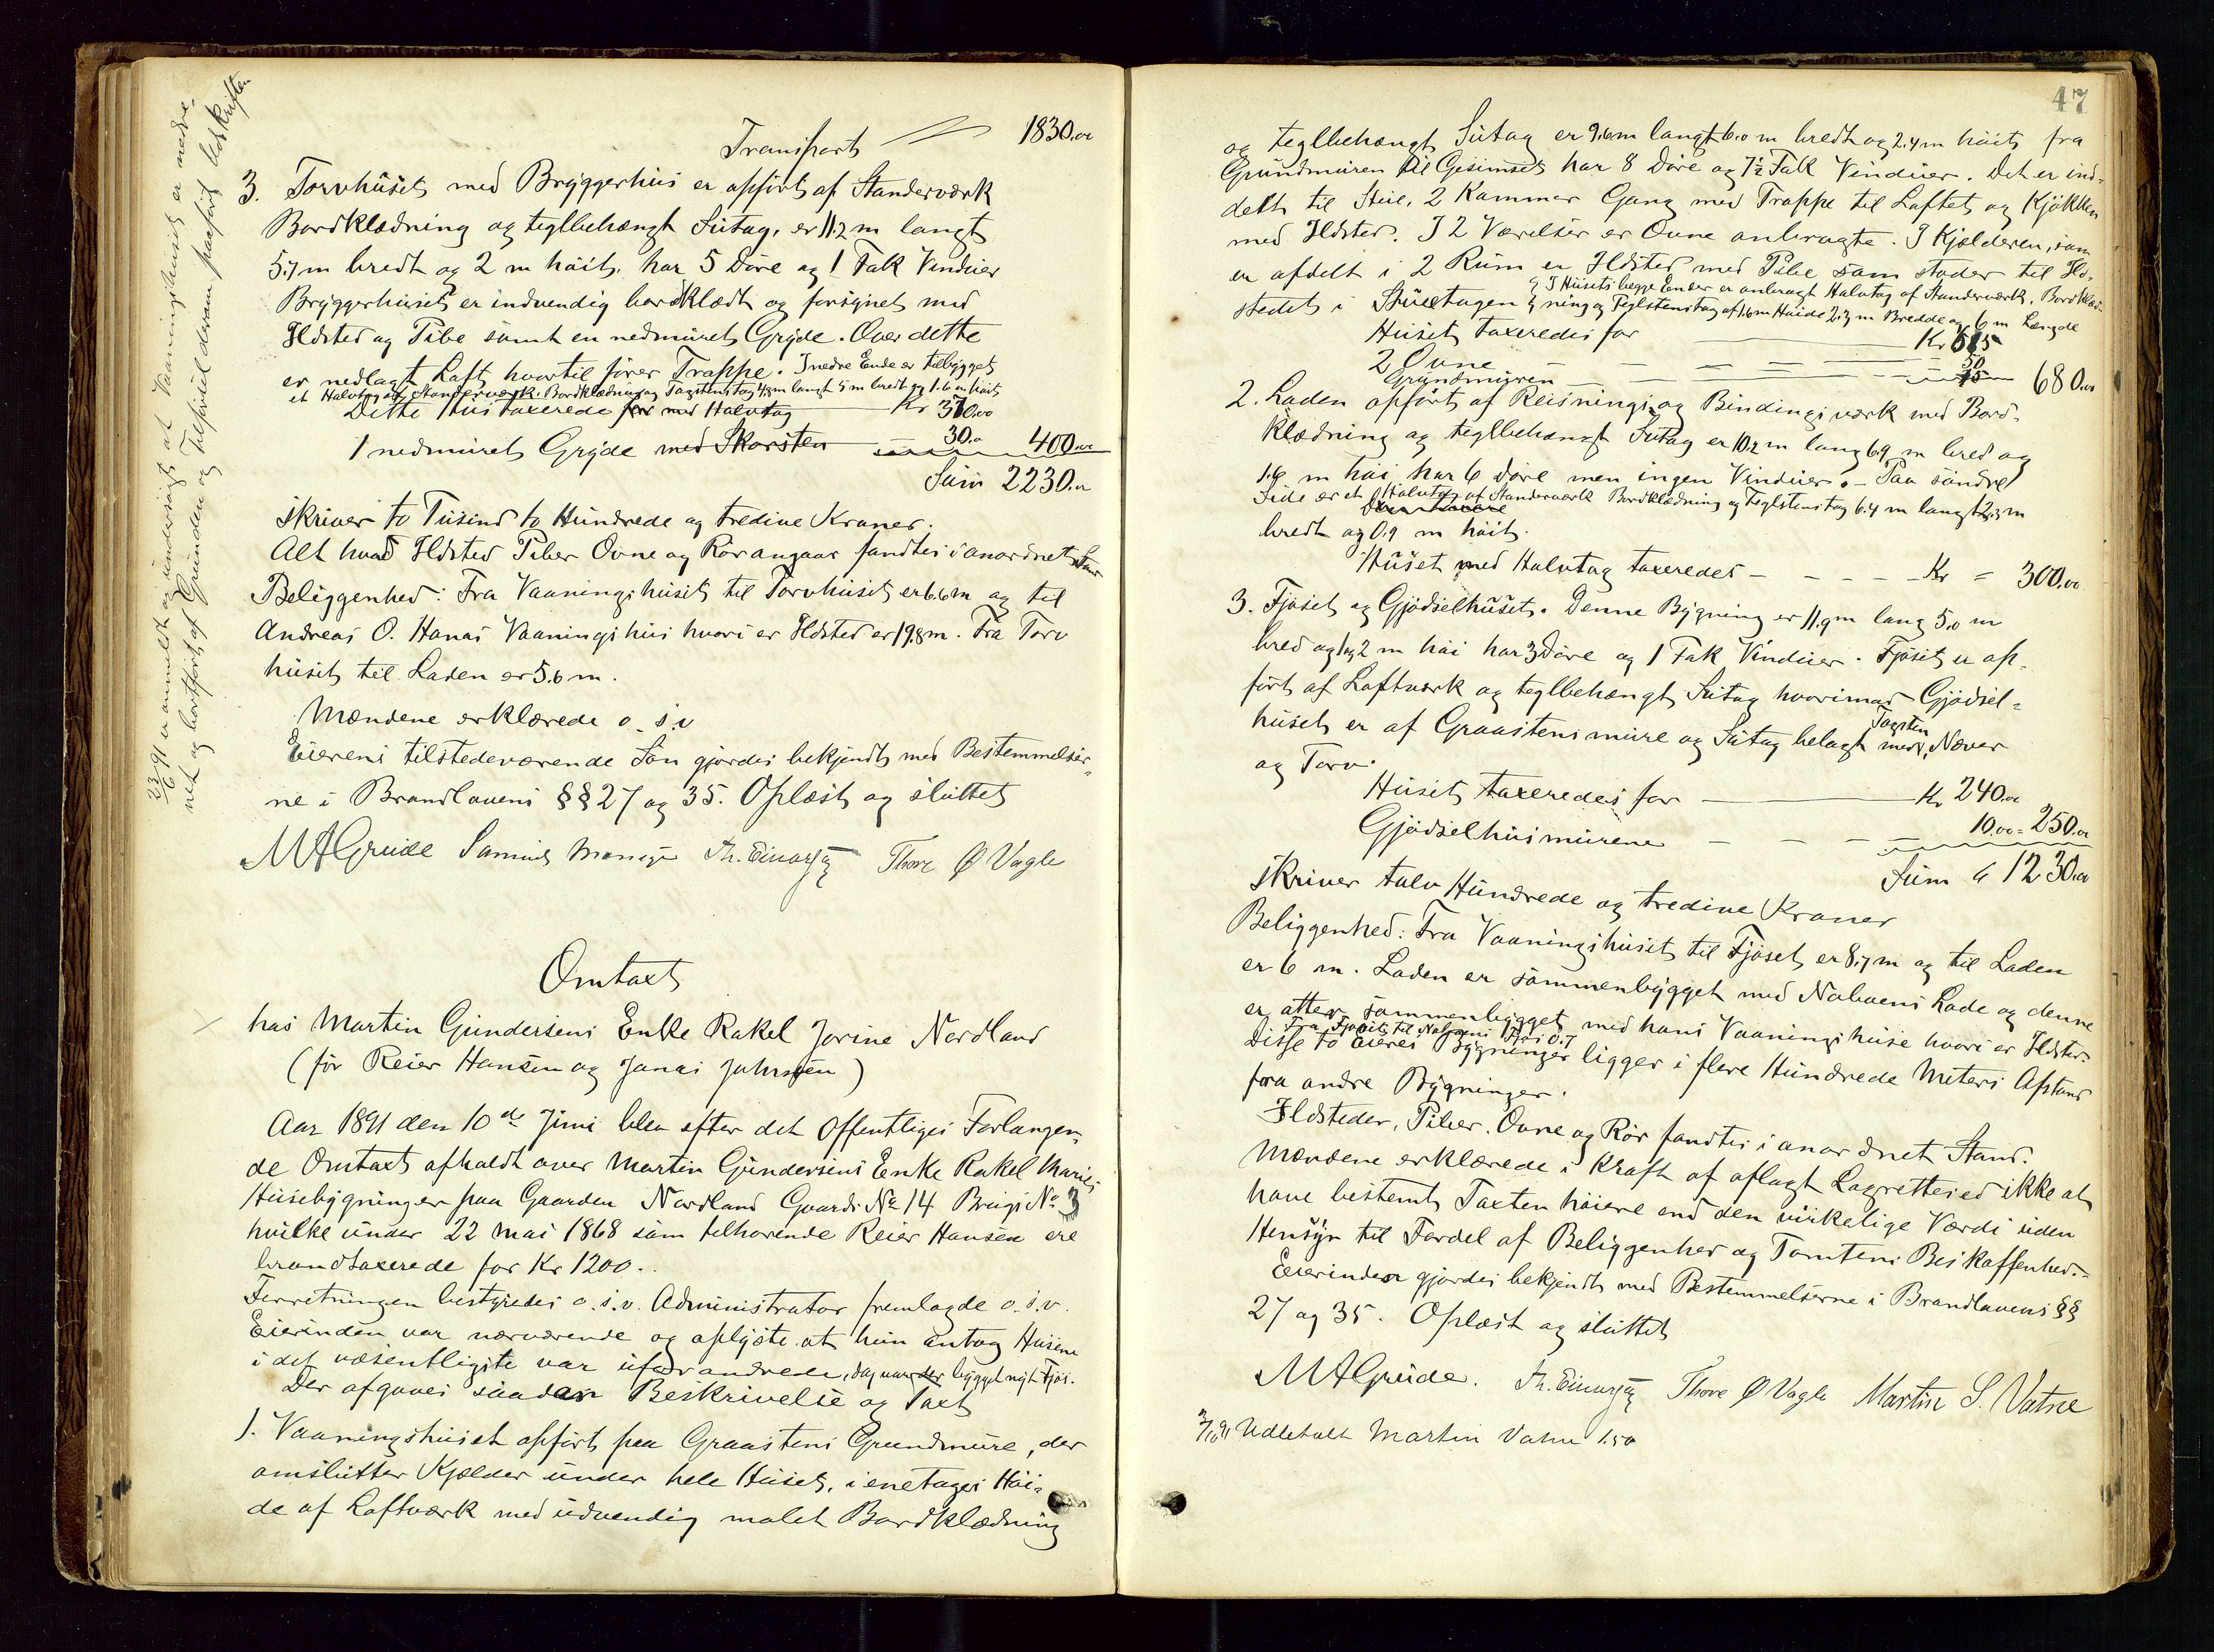 Transport 1830.00
3. Torvhuset med Bryggerhus er opført af Standerværk
Bordklædning og teglbehængt Sutag, er 11.2 m langt
5.7 m bredt og 2 m høit, har 5 Døre og 1 Fak Vinduer
Bryggerhuset er indvendig bordklædt og forsynet med
Ildsted og Pibe samt en nedmuret Gryde. Over dette
er nedlagt Loft hvortil fører Trappe. I nedre Ende er tilbygget
et Halvtag af Standerværk. Bordklædning og Tagstenstag 4.3 m langt 5 m bredt og 1.6 m høit
Dette Hus taxerede for med Halvtag Kr 370.00
1 nedmuret Gryde med Skorsten 30.0 400.00
Sum 2230.00
skriver to Tusind to Hundrede og tredive Kroner.
Alt hvad Ildsted Piber Ovne og Rør angaar fandtes i anordnet Stand
Beliggenhed: Fra Vaaningshuset til Torvhuset er 6.6 m og til
Andreas O. Hanas Vaaningshus hvori er Ildsted er 19.8 m. Fra Torv
huset til Laden er 5.6 m.
Mændene erklærede o. s. v
Eierens tilstedeværende Søn gjordes bekjendt med Bestemmelser-
ne i Brandlovens §§ 27 og 35. Oplæst og sluttet
M A Grude Samuel Th. Einarsen Thore Ø Vagle
23/6 91 er anmeldt og undersøgt at Vaaningshuset er nedre-
vet og bortført af Grunden og Tilføiel derom paaført Udskriften
Omtaxt
hos Martin Gundersens Enke Rakel Jorine Nordland
(før Reier Hansen og Jonas Johnsen)
Aar 1891 den 10de Juni blev efter det Offentliges Forlangen-
de Omtaxt afholdt over Martin Gundersens Enke Rakel Maries
Husebygninger paa Gaarden Nordland Gaards No 14 Brugs No 3
hvilke under 22 Mai 1868 som tilhørende Reier Hansen ere
brandtaxerede for Kr 1200.
Forretningen bestyredes o. s. v. Administrator fremlagde o. s. v.
Eierinden var nærværende og oplyste at hun antog Husene
i det væsentligste var uforandrede, dog var der bygget nyt Fjøs.
Der afgaves saadan Beskrivelse og Taxt
1. Vaaningshuset opført paa Graastens Grundmure, der
omslutter Kjelder under hele Huset, i en etages Høi-
de af Loftværk med udvendig malet Bordklædning
47
og teglbehængt Sutag er 9.6 m langt 6.0 m bredt og 2.4 m høit fra
Grundmuren til Gesimset har 8 Døre og 7½ Fak Vinduer. Det er ind-
delt til Stue, 2 Kammer Gang med Trappe til Loftet og Kjøkken
med Ildsted. I 2 Værelser er Ovne anbragte. I Kjælderen, som
er afdelt i 2 Rum er Ildsted med Pibe som støder til Ild-
stedet i Stueetagen
I Husets begge Ender er anbragt Halvtag af Standerværk, Bordklæd-
ning og Teglstenstag af 1.6 m Høide 2.3 m Bredde og 6 m Længde
Huset taxeredes for Kr 615
2 Ovne 50
Grundmuren 15 680.00
2. Laden opført af Reisnings og Bindingsværk med Bord-
klædning og teglbehængt Sutag er 10.2 m lang 6.9 m bred og
1.6 m høi har 6 Døre men ingen Vinduer. – Paa søndre
Side er et Halvtag af Standerværk Bordklædning og Teglstenstag 6.4 m langt 2.3 m
bredt og 0.9 m høit.
Huset med Halvtag taxeredes Kr = 300.00
3. Fjøset og Gjødselhuset. Denne Bygning er 11.9 m lang 5.0 m
bred og 1 og 2 m høi har 3 Døre og 1 Fak Vinduer. Fjøset er op-
ført af Loftværk og teglbehængt Sutag hvorimod Gjødsel-
huset er af Graastensmure og Sutag belagt med Tagsten, Næver
og Torv.
Huset taxeredes for Kr 240.00
Gjødselhusmurene 10.00 = 250.00
Sum 1230.00
skriver tolv Hundrede og tredive Kroner
Beliggenhed: Fra Vaaningshuset til Fjøset er 8.7 m og til Laden
er 6 m. Laden er sammenbygget med Naboens Lade og denne
er atter sammenbygget med hans Vaaningshuse hvori er Ildsted.
Fra Fjøset til Naboens Fjøs 0.7
Disse to Eieres Bygninger ligger i flere Hundrede Meters Afstand
fra andre Bygninger.
Ildsteder, Piber, Ovne og Rør fandtes i anordnet Stand.
Mændene erklærede i Kraft af aflagt Lagrettesed ikke at
have bestemt Taxten høiere end den virkelige Værdi uden
Hensyn til Fordel af Beliggenhed og Tomtens Beskaffenhed.
Eierinden gjordes bekjendt med Bestemmelserne i Brandlovens §§
27 og 35. Oplæst og sluttet
M A Grude. Th. Einarsen Thore Ø Vagle Martin S. Vatne
Udbetalt Martin Vatne 1.50